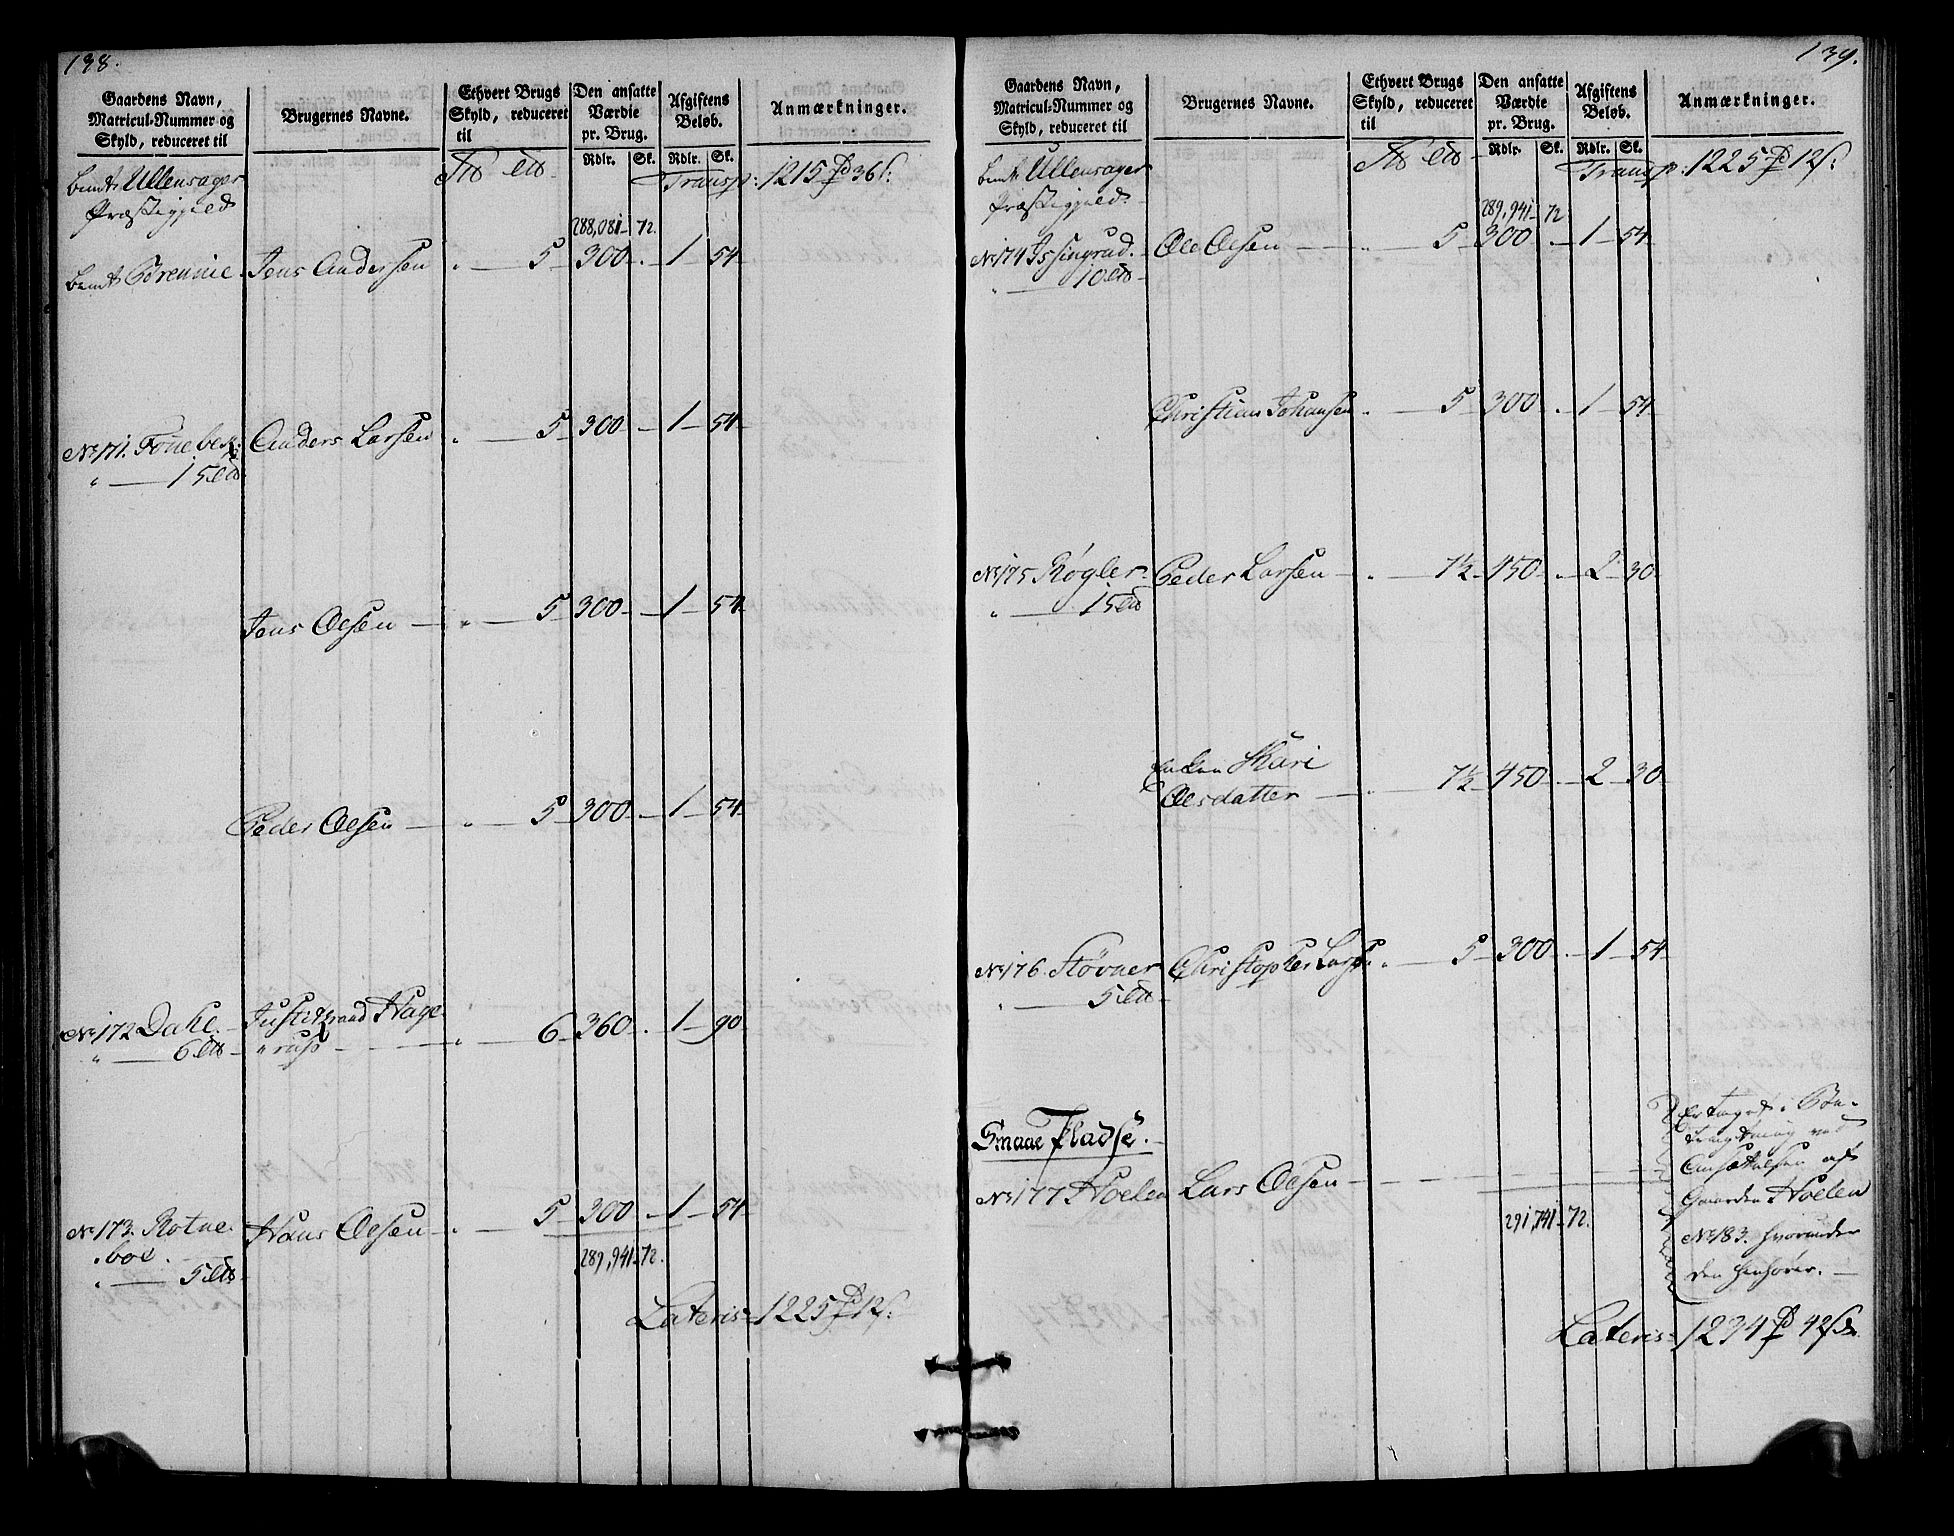 138.
Gaardens Navn,
Matricul-Nummer og
Skyld, reduceret til
Brugernes Navne.
Ethvert Brugs
Skyld, reduceret
til
Den ansatte
Værdie
pr. Brug.
Afgiftens
Beløb.
Anmærkninger.
Rdlr. Sk. Rdlr. Sk.
bemt: Ullensager
Præstigjeld
Transp: 1215 36 s:
288,081 - 72.
bemt: Børennie Jens Andersen 5 - 300 - 1 - 54
No 171. Tønebek: Anders Larsen 5 - 300 - 1 - 54
" 15
Jens Olsen 5 - 300 - 1 - 54
Peder Olsen 5 - 300 - 1 - 54
No 172 Dahl Justitzraad Hage 6 - 360 - 1 - 90
" 6 " rup
No 173. Rotne Hans Olsen 5 - 300 - 1 - 54
boe.
" 5
289,941 - 72.
Lateris 1225 12 s:
139.
Gaardens Navn,
Matricul-Nummer og
Skyld, reduceret til
Brugernes Navne.
Ethvert Brugs
Skyld, reduceret
til
Den ansatte
Værdie
pr. Brug.
Afgiftens
Beløb.
Anmærkninger.
Rdlr. Sk. Rdlr. Sk.
bemt: Ullensager
Præstigjeld
Transp. 1225 12 s:
289,941 - 72
No 174 Issingrud Ole Olsen 5 - 300 - 1 - 54
" 10
Christian Johansen 5 - 300 - 1 - 54
No 175 Røgler Peder Larsen 7½ - 450 - 2 - 30
" 15
Enken Kari
Olsdatter 7½ - 450 - 2 - 30
No 176 Støvner Christopher Larsen 5 - 300 - 1 - 54
" 5
Smaae Pladse.
No 177 Hoelen Lars Olsen
Er taget i Be-
tragtning ved
Ansættelsen af
Gaarden Hoelen
No 183. hvorunder
den henhører.
291,741 - 72.
Lateris 1234 42 s